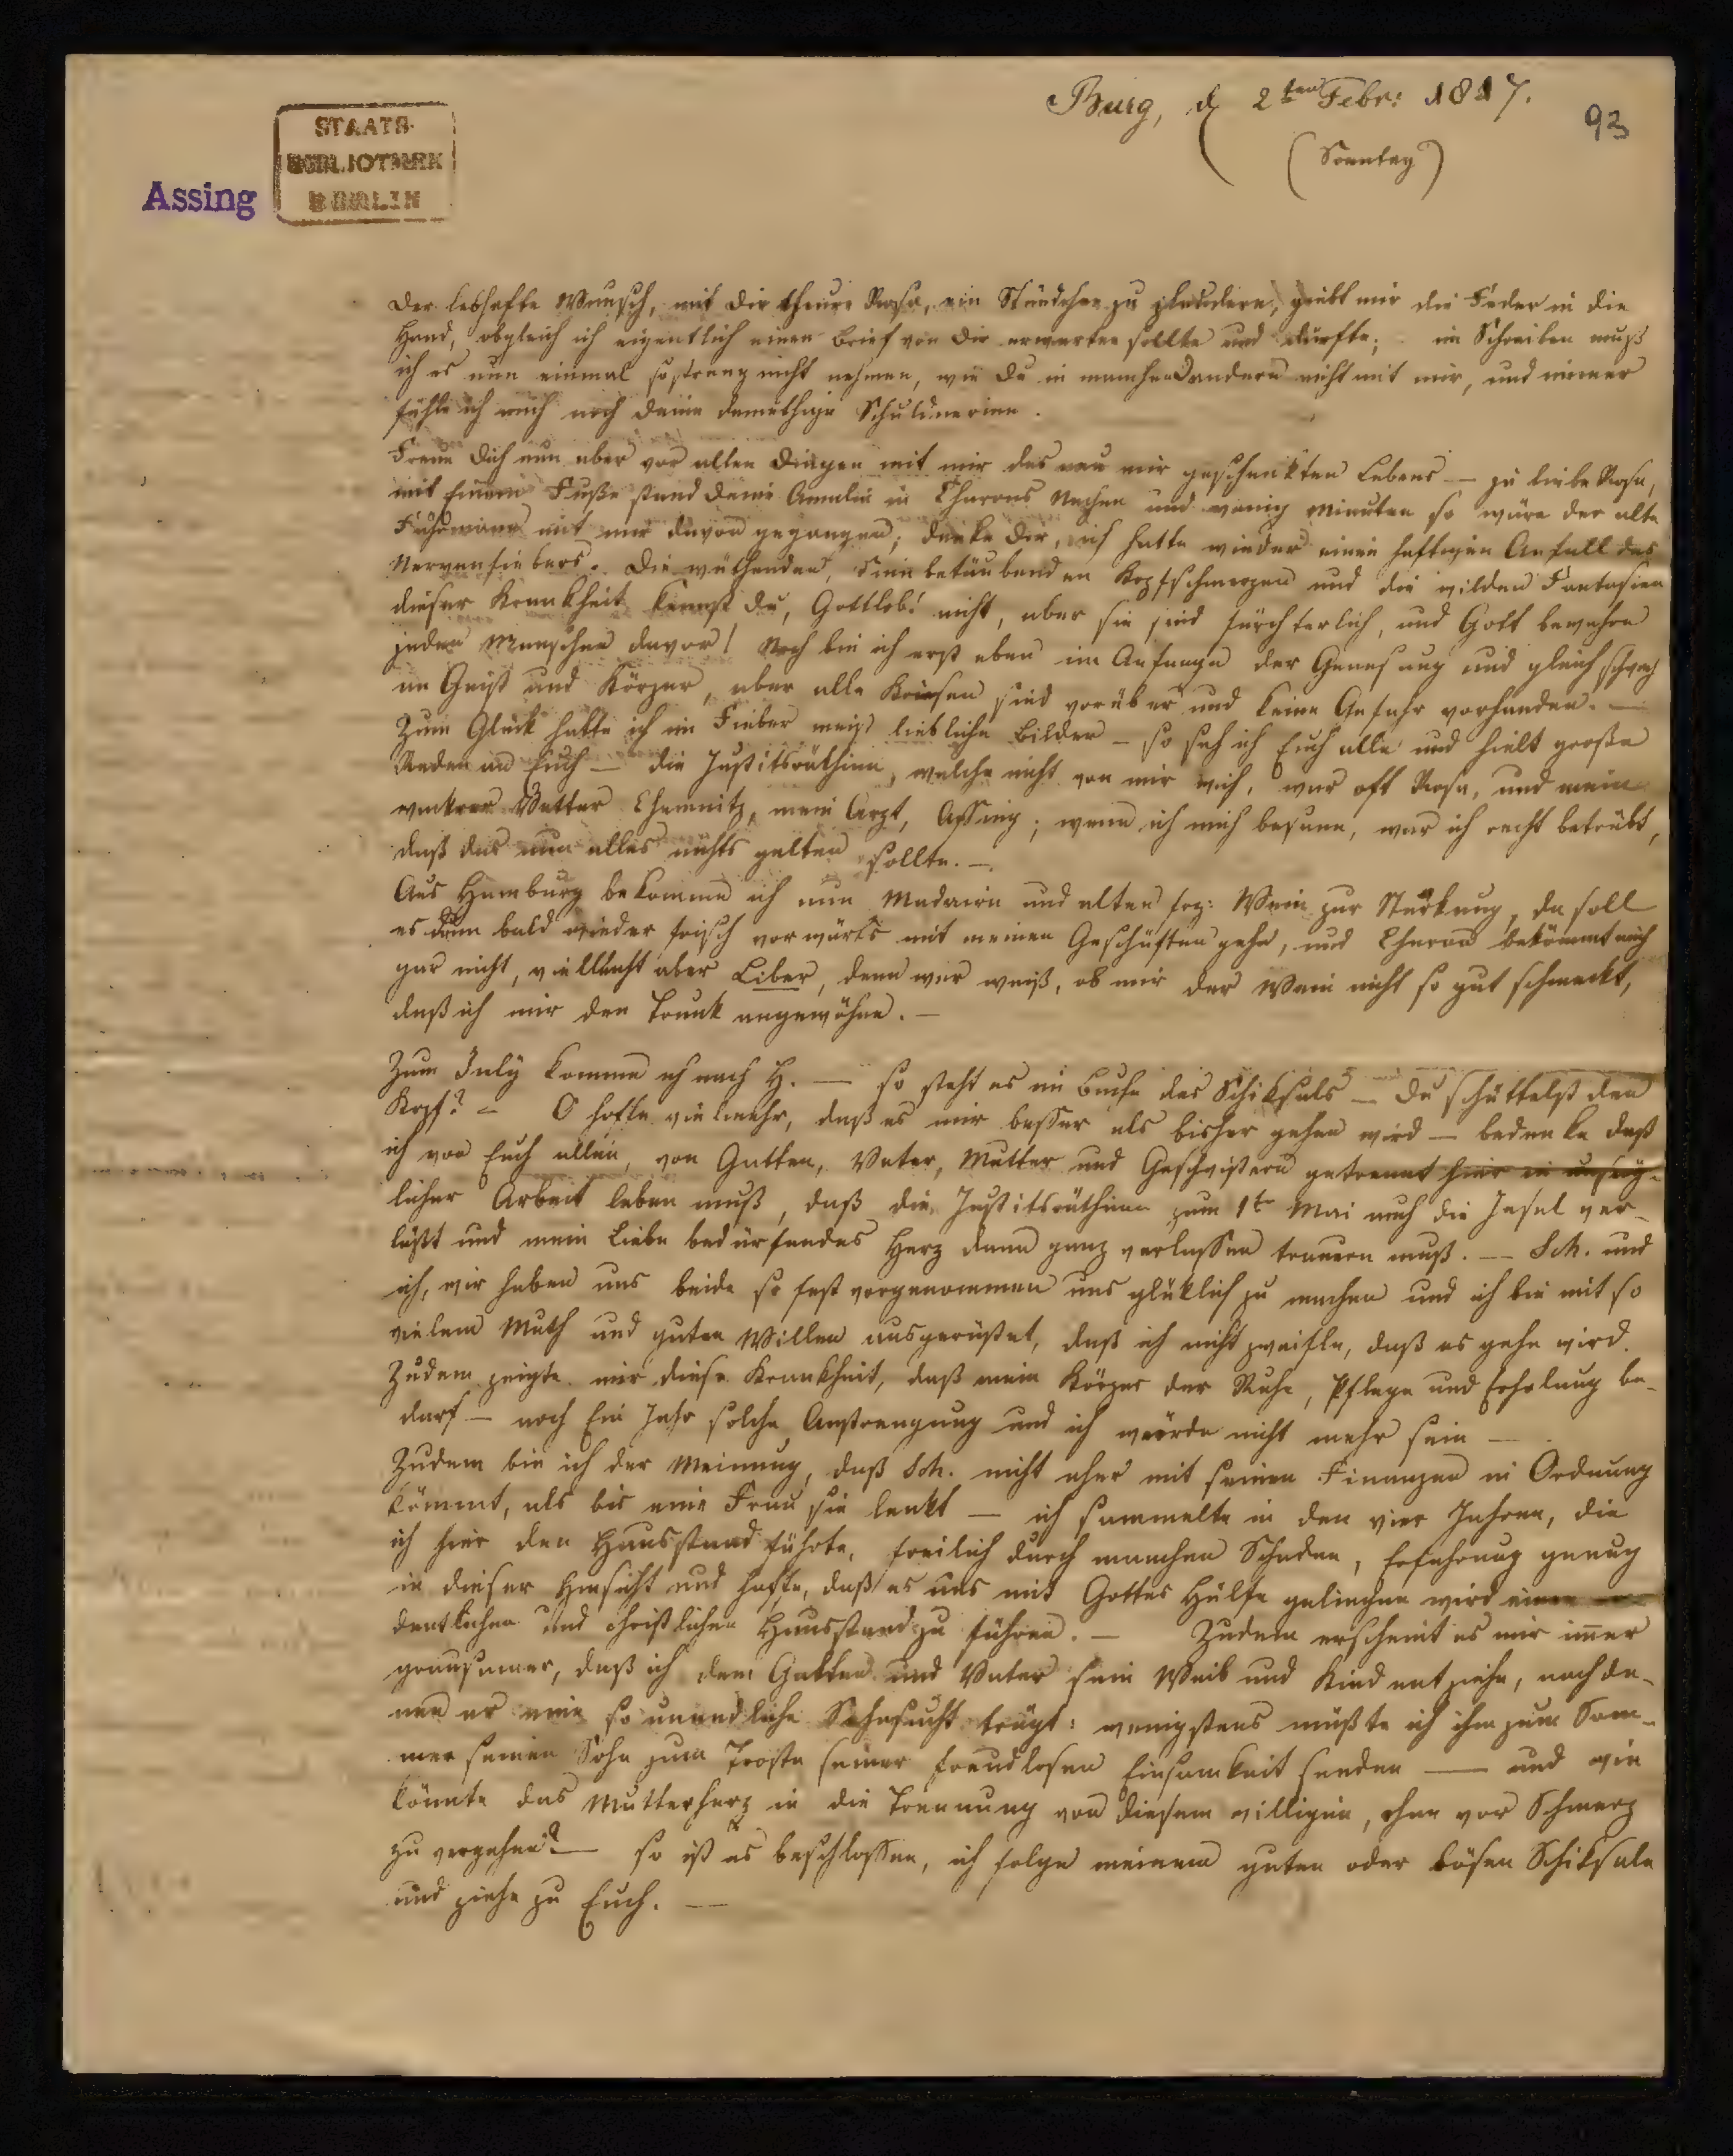 Burg, d 2ten Febr: 1817.
93
(Sonntag)
STAATS-
BIBLIOTHEK
BERLIN
Assing
Der lebhafte Wunsch, mit Dir theure Rosa, ein Stündchen zu plaudern, giebt mir die Feder in die
Hand, obgleich ich eigentlich einen Brief von Dir erwarten sollte und dürfte; im Schreiben muß
ich es nun einmal so streng nicht nehmen, wie Du in manchen andern nicht mit mir, und immer
fühle ich mich noch Deine demüthige Schuldnerinn.
Freue Dich nun aber vor allen Dingen mit mir des neu mir geschenkten Lebens — ja liebe Rosa,
mit Einem Fuße stand Deine Amalia in Charons Nachen und wenig Minuten so wäre der alte
Fuhrmann mit mir davon gegangen; denke Dir, ich hatte wieder einen heftigen Anfall des
Nervenfiebers. Die wüthenden, sinnbetäubenden Kopfschmerzen und die wilden Fantasien
dieser Krankheit kennst Du, Gottlob! nicht, aber sie sind fürchterlich, und Gott bewahre
jeden Menschen davor! Noch bin ich erst eben im Anfange der Genesung und gleich schwach
an Geist und Körper, aber alle Kriesen sind vorüber und keine Gefahr vorhanden. —
Zum Glück hatte ich im Fieber meist liebliche Bilder – so sah ich Euch alle und hielt große
Reden an Euch — die Justitsräthinn, welche nicht von mir wich, war oft Rosa, und mein
wackrer Vetter Chemnitz, mein Arzt, Assing; wenn ich mich besann, war ich recht betrübt,
daß das nun alles nichts gelten sollte. —
Aus Hamburg bekomme ich nun Madaira und alten frz: Wein zur Stärkung, da soll
es dann bald wieder frisch vorwärts mit meinen Geschäften gehn, und Charon bekömmt mich
gar nicht, vielleicht aber Liber, denn wer weiß, ob mir der Wein nicht so gut schmeckt,
daß ich mir den Trunk angewöhne. —
Zum July komme ich nach H. — so steht es im Buche des Schiksals — Du schüttelst den
Kopf? – O hoffe vielmehr, daß es mir besser als bisher gehen wird — bedenke daß
ich von Euch allen, von Gatten, Vater, Mutter und Geschwistern getrennt hier in unsäg-
licher Arbeit leben muß, daß die Justitsräthinn zum 1ten Mai auch die Insel ver-
läßt und mein Liebe bedürfendes Herz dann ganz verlassen trauern muß. — Sch. und
ich, wir haben uns beide so fest vorgenommen uns glüklich zu machen und ich bin mit so
vielem Muth und guten Willen ausgerüstet, daß ich nicht zweifle, daß es gehn wird.
Zudem zeigte mir diese Krankheit, daß mein Körper der Ruhe, Pflege und Erholung be-
darf — noch Ein Jahr solche Anstrengung und ich würde nicht mehr sein —
Zudem bin ich der Meinung, daß Sch. nicht eher mit seinen Finanzen in Ordnung
kömmt, als bis eine Frau sie lenkt — ich sammelte in den vier Jahren, die
ich hier den Hausstand führte, freilich durch manchen Schaden, Erfahrung genug
in dieser Hinsicht und hoffe, daß es uns mit Gottes Hülfe gelingen wird einen or-
dentlichen und christlichen Hausstand zu führen. — Zudem erscheint es mir immer
grausamer, daß ich dem Gatten und Vater sein Weib und Kind entziehe, nach de-
nen er eine so unendliche Sehnsucht trägt: wenigstens müßte ich ihm zum Som-
mer seinen Sohn zum Troste seiner freudlosen Einsamkeit senden — und wie
könnte das Mutterherz in die Trennung von diesem willigen, ohne vor Schmerz
zu vergehen? — so ist es beschlossen, ich folge meinem guten oder bösen Schiksale
und ziehe zu Euch. —